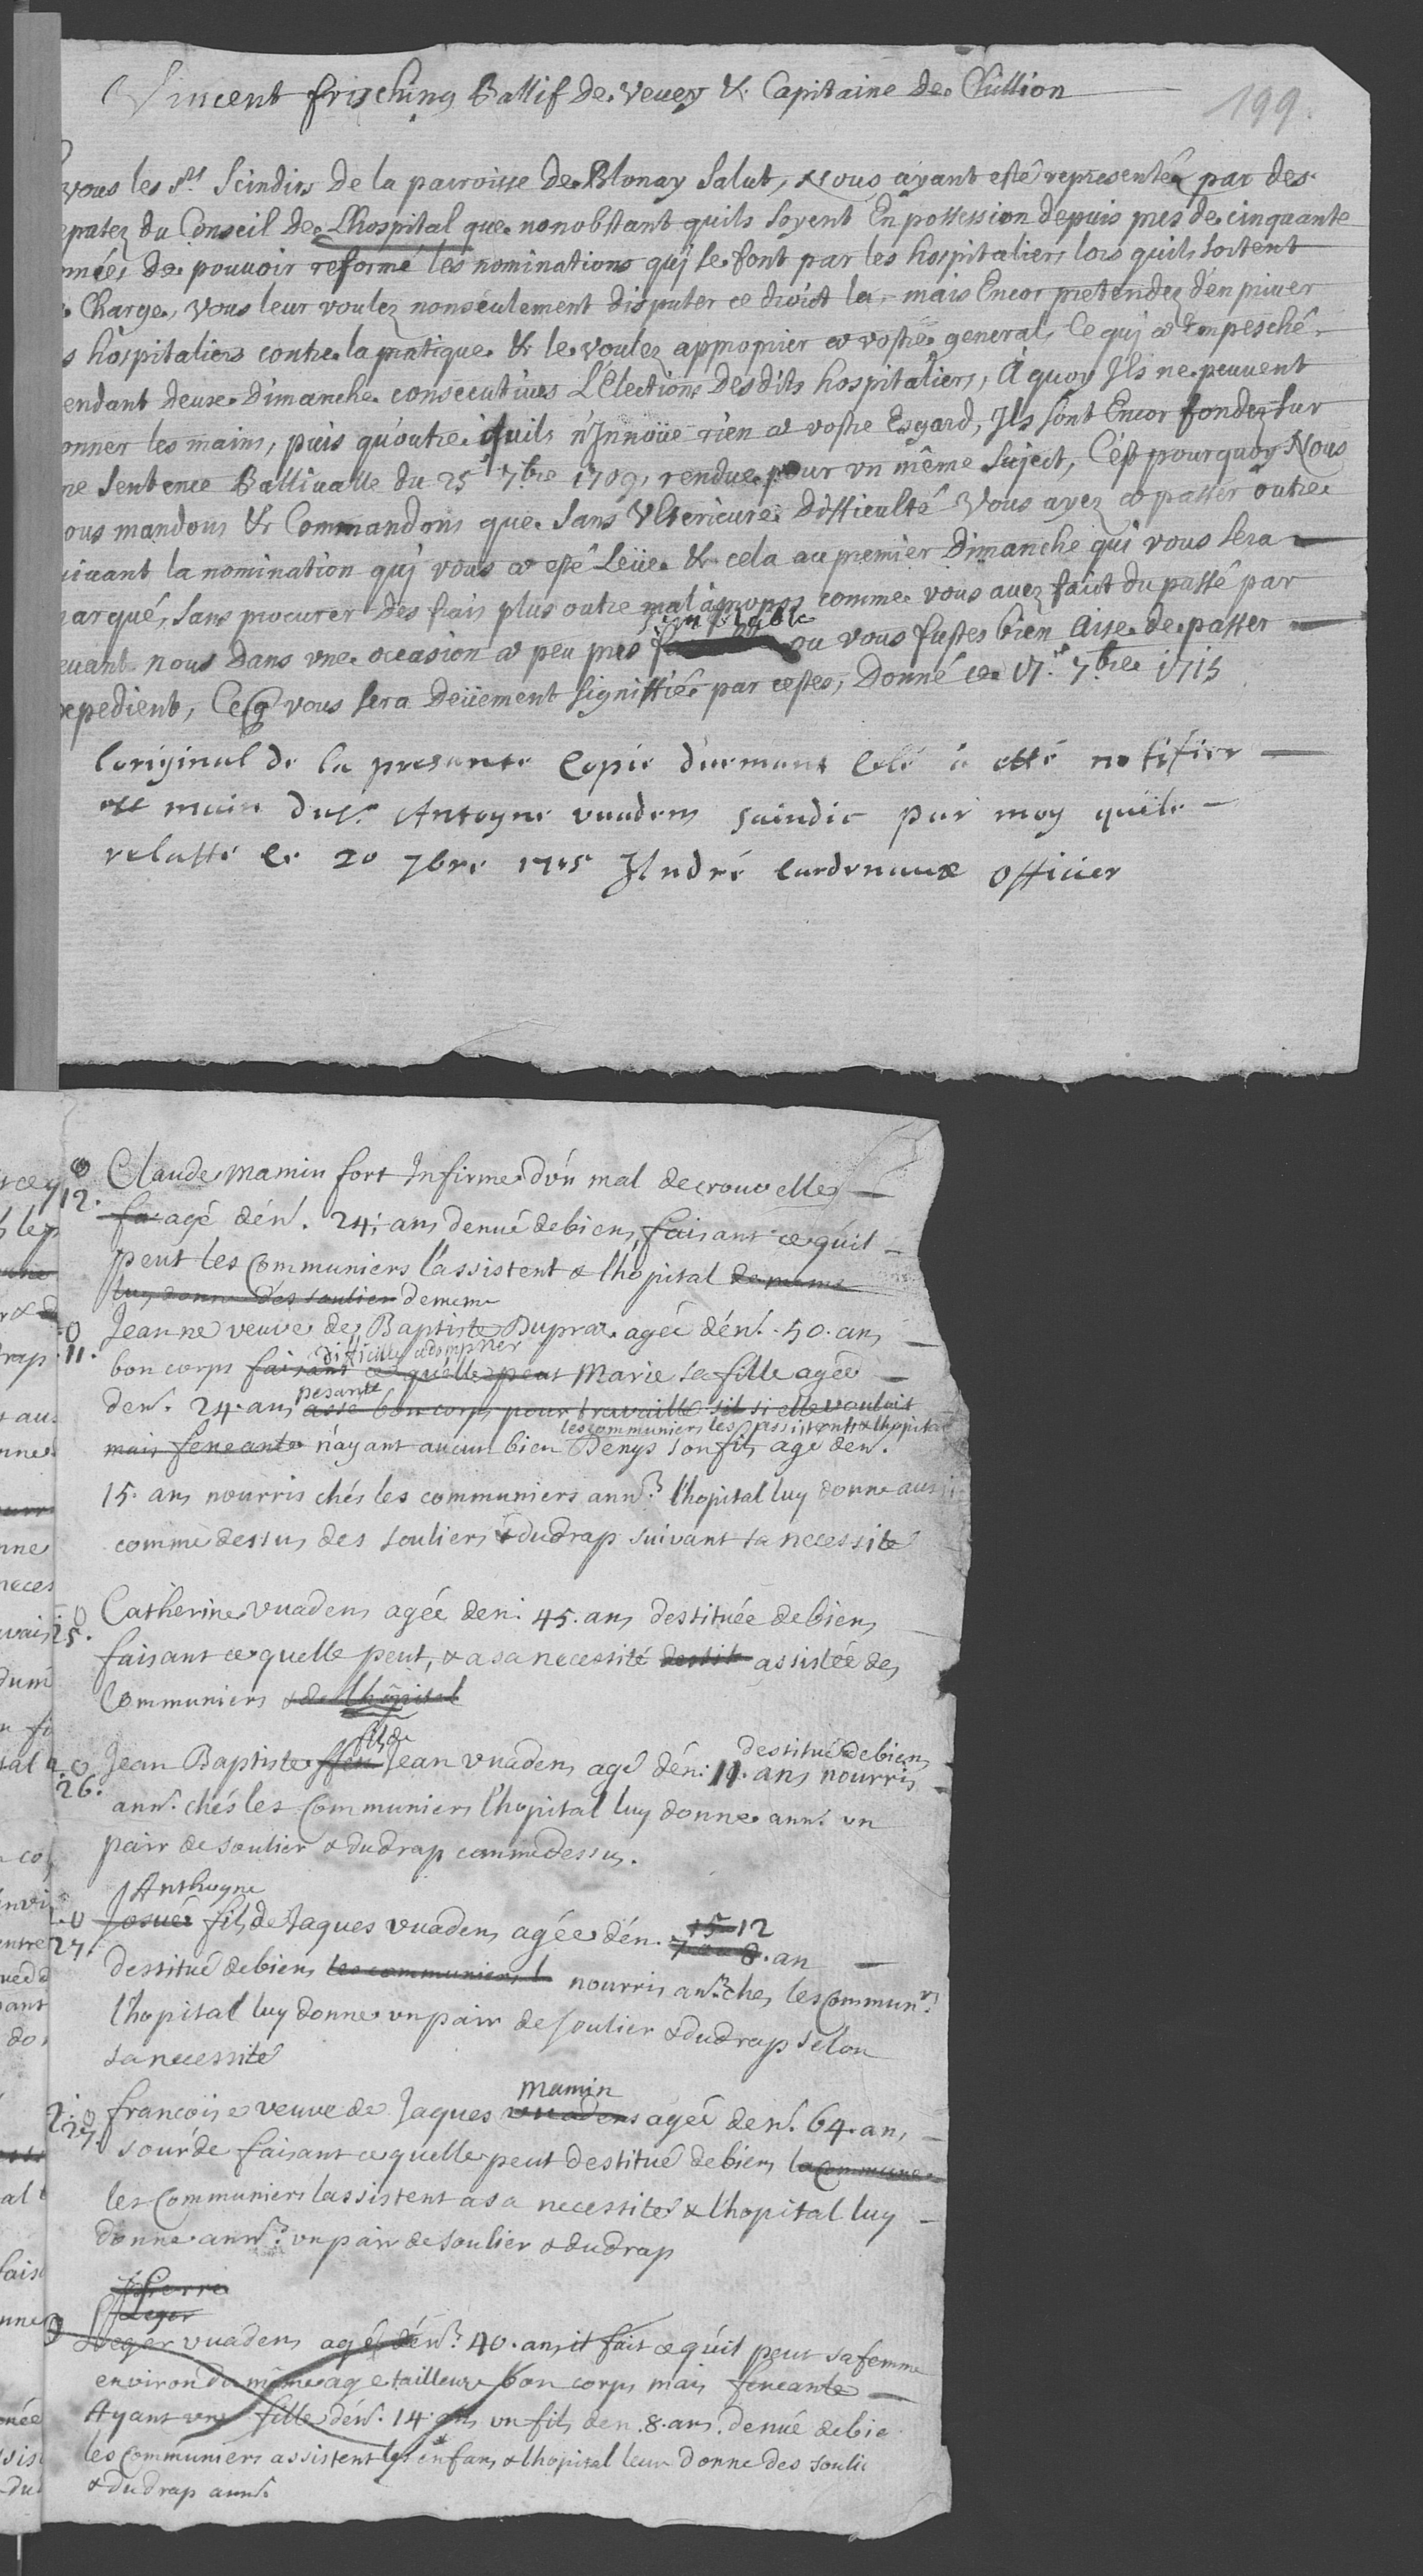 Vincent frisching Ballif de Vevey & Capitaine de Chillion
199.
vous les Srs Scindirs de la parroisse de Blonay Salut, Nous ayant esté representé par des
eputez du Conseil de Lhospital que nonobstant quils soyent En possession depuis pres de cinquante
nnées de pouvoir reformé les nominations quj se font par les hospitaliers lors quils sortent
Charge, vous leur voulez nonseulement disputer ce droict la, mais Encor pretendez d'en priver
s hospitaliers contre la pratique & le voulez approprier a vostre general, Ce quj a Empesché
endant deuxe Dimanche consecutives L'Elections desdits hospitaliers, A quoy Jls ne peuvent
onner les mains, puis qu'outre quils n'Jnnoüe rien a vostre Esgard, Jls sont Encor fondez sur
ne Sentence Ballivalle du 25e 7bre 1709, rendue pour vn même Suject, C'est pourquoy Nous
ous mandons & Commandons que sans Vlterieure Difficulté Vous ayez a passer outre
uivant la nomination quj vous a esté Leüe & cela au premier Dimanche qui vous sera
arqué, sans procurer des frais plus outre mal à propos comme vous avez faict du passé par
semblable
evant nous Dans vne occasion a peu pres ou vous fustes bien Aise de passer
xpedient, Ce q vous sera Deüement signiffiée par cestes, Donné ce 17e 7bre 1715
Loriginal de la presante Copie duemant celé à esté notifier
est main du Sr Antoyne vuadens saindic par moy qui le
relatte le 20 7bre 1715 André Cardenaux officier
Claude mamin fort Infirme d'vn mal de crouvelles
12.
fa agé d'én. 24. ans denué de biens, faisant ce qu'il
peut les Communiers l'assistent & l'hopital de meme
luy donne des soulier de meme
Jeanne veuve de Baptiste Dupraz agée d'én. 50. ans
11.
difficille a dompner
bon corps faisant ce quelle peut Marie sa fille agée
pesante
den. 24. ans asse bon corps pour travaille sil si elle vouloit
les communiers les assistent & lhopital
mais feneante n'ayant aucun bien Denys son fils agé den.
15. ans nourris chés les communiers ann. l'hopital luy donne aussi
comme dessus des souliers & du drap suivant sa necessite
Catherine vuadens agée den. 45. ans destituée de biens
25.
faisant ce quelle peut, & a sa necessité destit assistée des
Communiers & de l'hôpital
fils de
destitué de biens
Jean Baptiste ffeu Jean vuadens agé dén. 11. ans nourris
26.
ann. chés les Communiers l'hopital luy donne ann. vn
pair de soulier & du drap comme dessus.
Anthoyne
15 12
Josué fils de Jaques vuadens agée dén. 7 ou 8. an
27.
destitué de biens les communiers l nourris an. ches les Commun.rs
l'hopital luy donne vn pair de soulier & du drap selon
sa necessité
mamin
françoise veuve de Jaques vuadens agée den. 64. ans
sourde faisant ce quelle peut destitué de biens la Commune
les Communiers lassistent a sa necessite & l'hopital luy
donne ann. vn pair de soulier & du drap
Pierre
Leger
Leger vuadens agé d'én. 40. ans il fait ce qu'il peut sa femme
environ du même age tailleure bon corps mais feneante
Ayant vne fille dén. 14. ans vn fils den. 8. ans. denué de bie
les Communiers assistent les enfans & lhopital leur donne des soulie
& du drap ann.